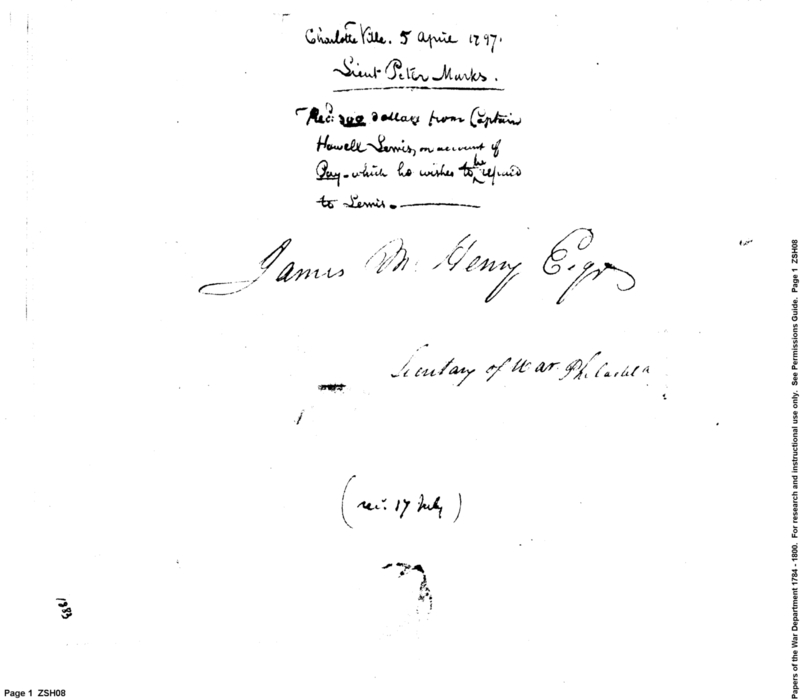 Charlotte Ville. 5 April 1797.
Lieut Peter Marks.
Rec.d 200 dollars from Captain
Howell Lewis, on account of
Pay - which he wishes to be repaid
to Lewis.
James Mc Henry Esqr
Secretary of War Philadela
(rec. 17 July)
Page 1 ZSH08
Papers of the War Department 1784 - 1800. For research and instructional use only. See Permissions Guide. Page 1 ZSH08